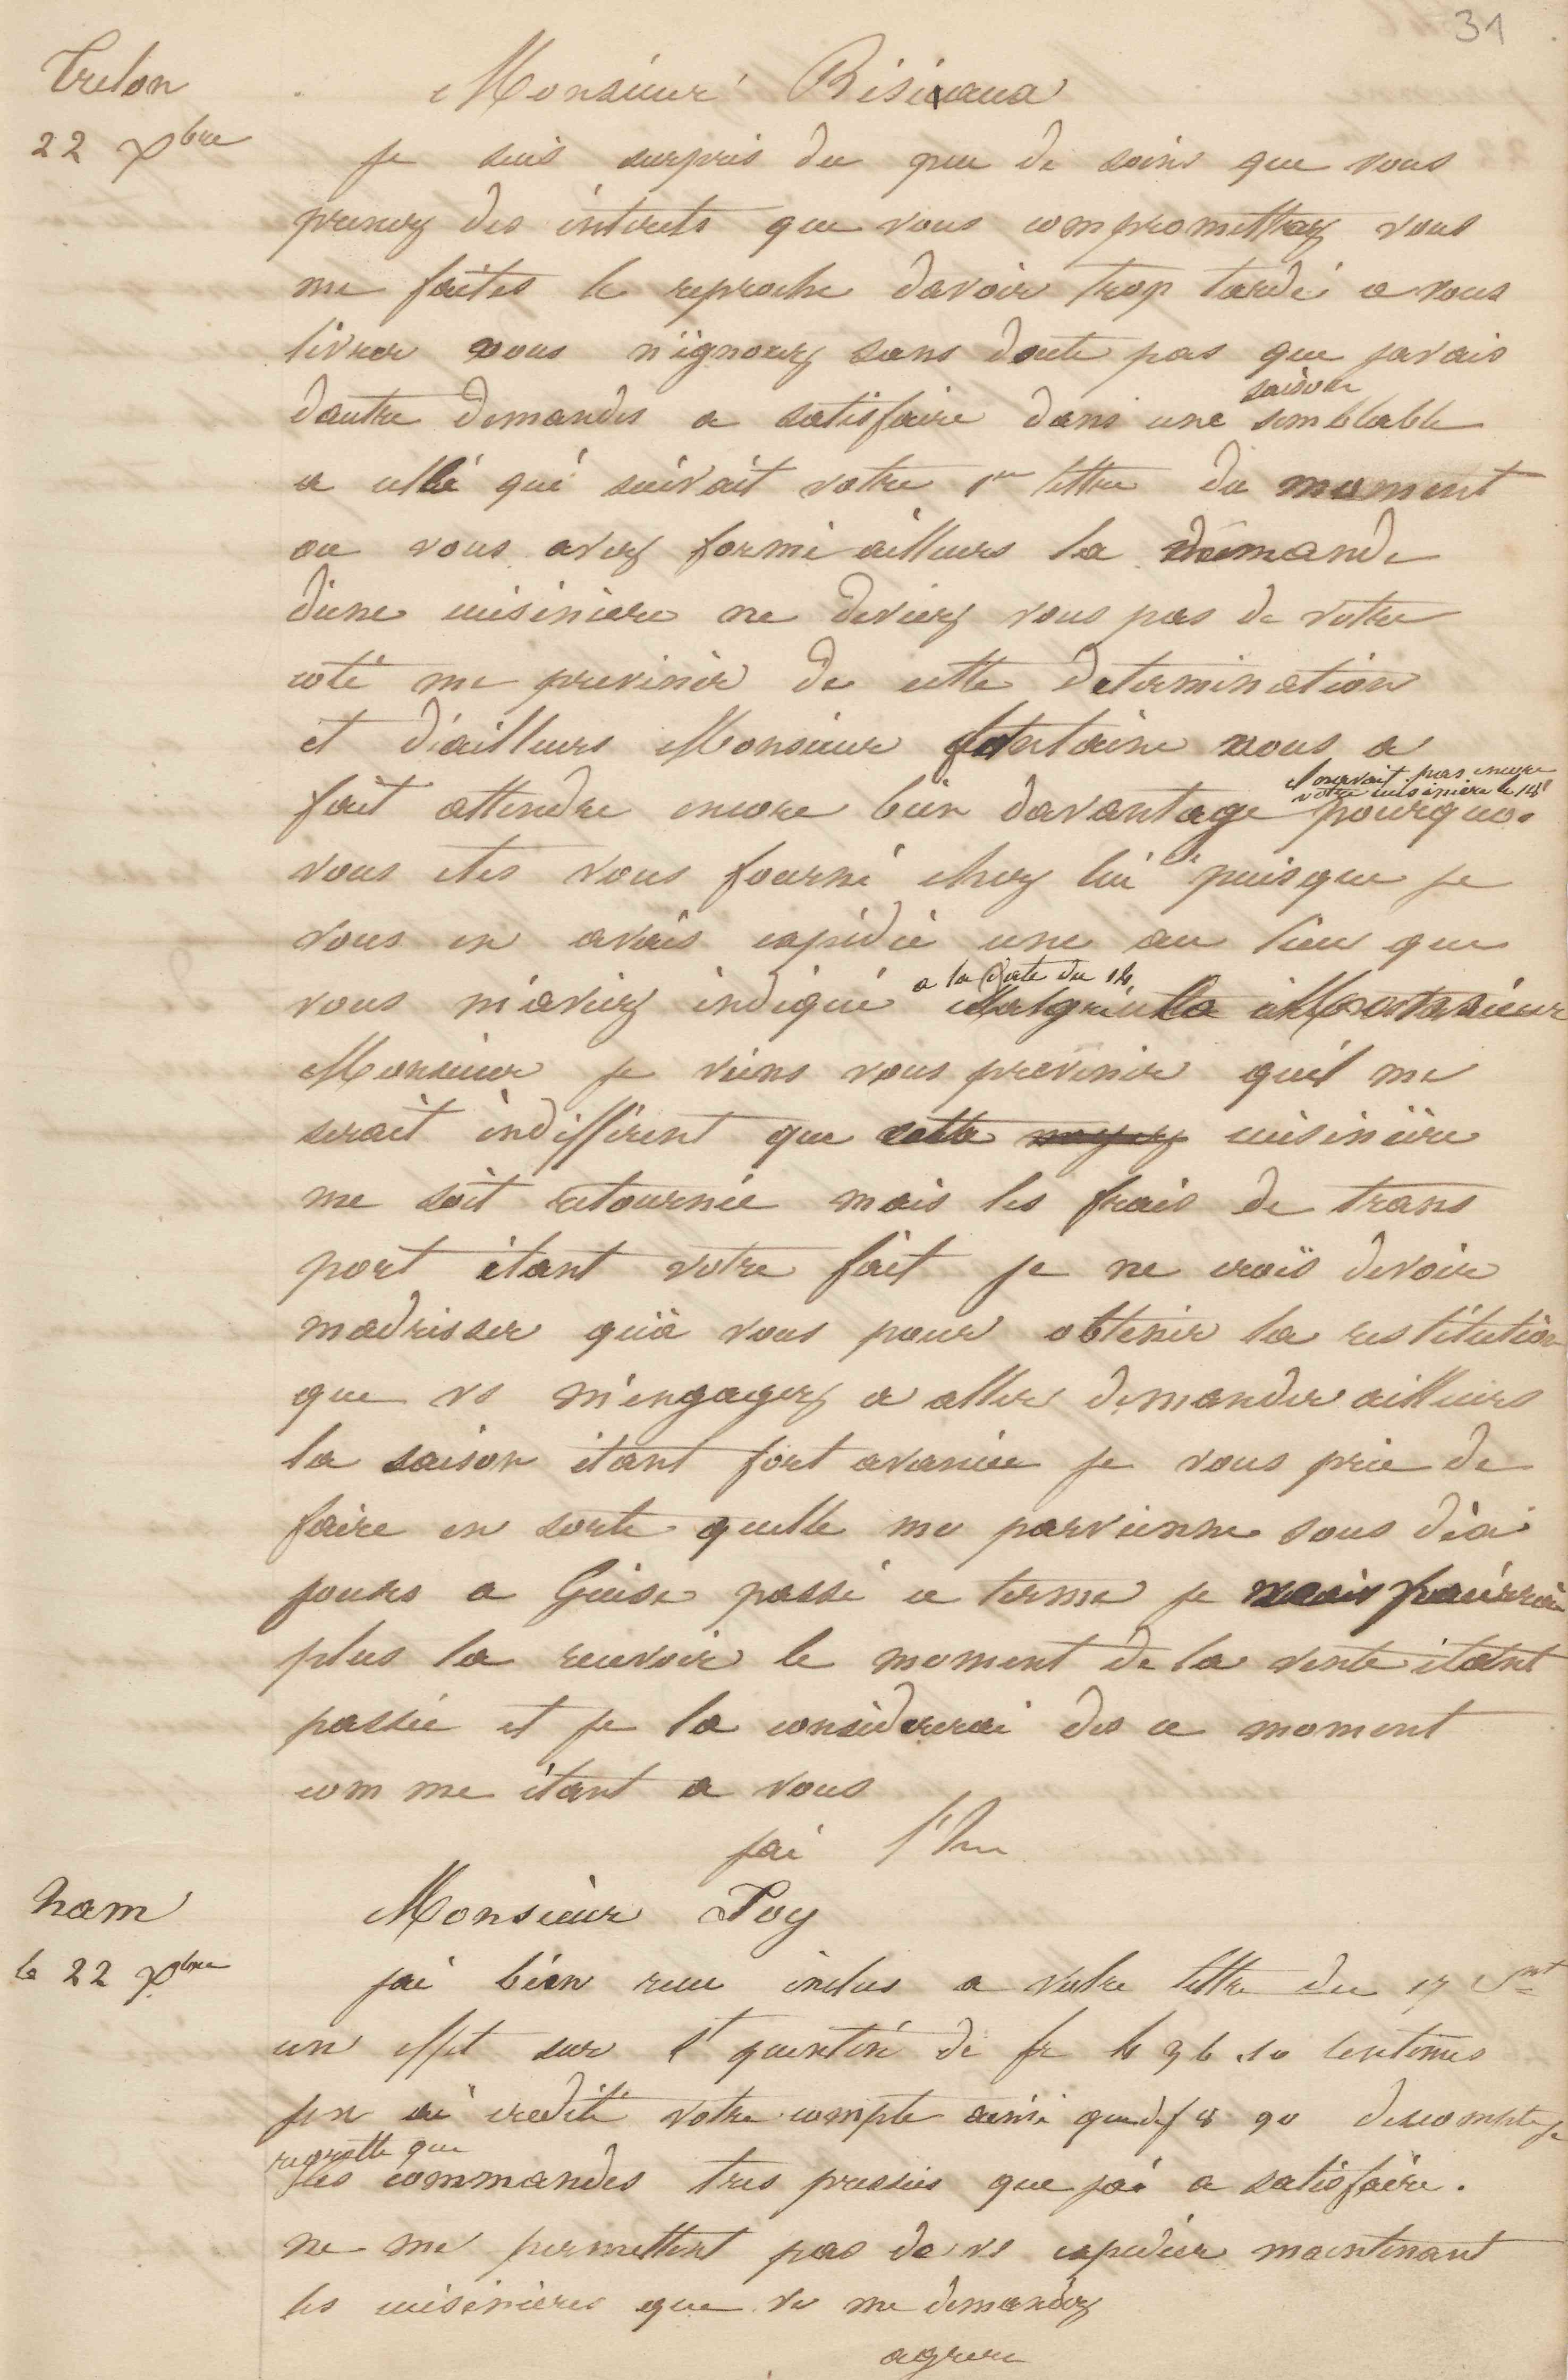 31
Trelon
22 Xbre
Monsieur
je suis surpris du peu de soins que vous
prenez des interets que vous compromettez vous
me faites le reproche davoir trop tardé a vous
livrer vous n'ignorez sans doute pas que javais
dautre demandes a satisfaire dans une saison semblable
a celle qui suivait votre 1re lettre du moment
ou vous avez formé ailleurs la demande
d'une cuisiniere ne deviez vous pas de votre
coté me prevenir de cette determination
et d'ailleurs Monsieur fontaine vous a
fait attendre encore bien davantage il navait pas encore
votre cuisiniere le 18 pourquoi
vous etes vous fourni chez lui puisque je
vous en avais expédié une au lieu que
vous m'aviez indiqué a la date du 14 Malgré cela Monsieur
Monsieur je viens vous prevenir quil me
serait indifférent que cette cuisinière
me soit retournée mais les frais de trans
port étant votre fait je ne crois devoir
madresser qu'à vous pour obtenir la restitution
que vs m'engagez a aller demander ailleurs
la saison étant fort avancée je vous prie de
faire en sorte quelle me parvienne sous dix
jours a Guise passé ce terme je pourrai
plus la recevoir le moment de la vente étant
passée et je la considererai des ce moment
com me étant a vous
jai l'hr
ham
le 22 Xbre
Monsieur Poy
jai bien recu inclus a votre lettre du 17 Ct
un effet sur St quentin de fr 496.10 centimes
jen ai credité votre compte ainsi que de f 8 90 descompte je
regrette que
les commandes tres pressées que jai a satisfaire.
ne me permettent pas de vs expedier maintenant
les cuisinieres que vs me demandez
agreez